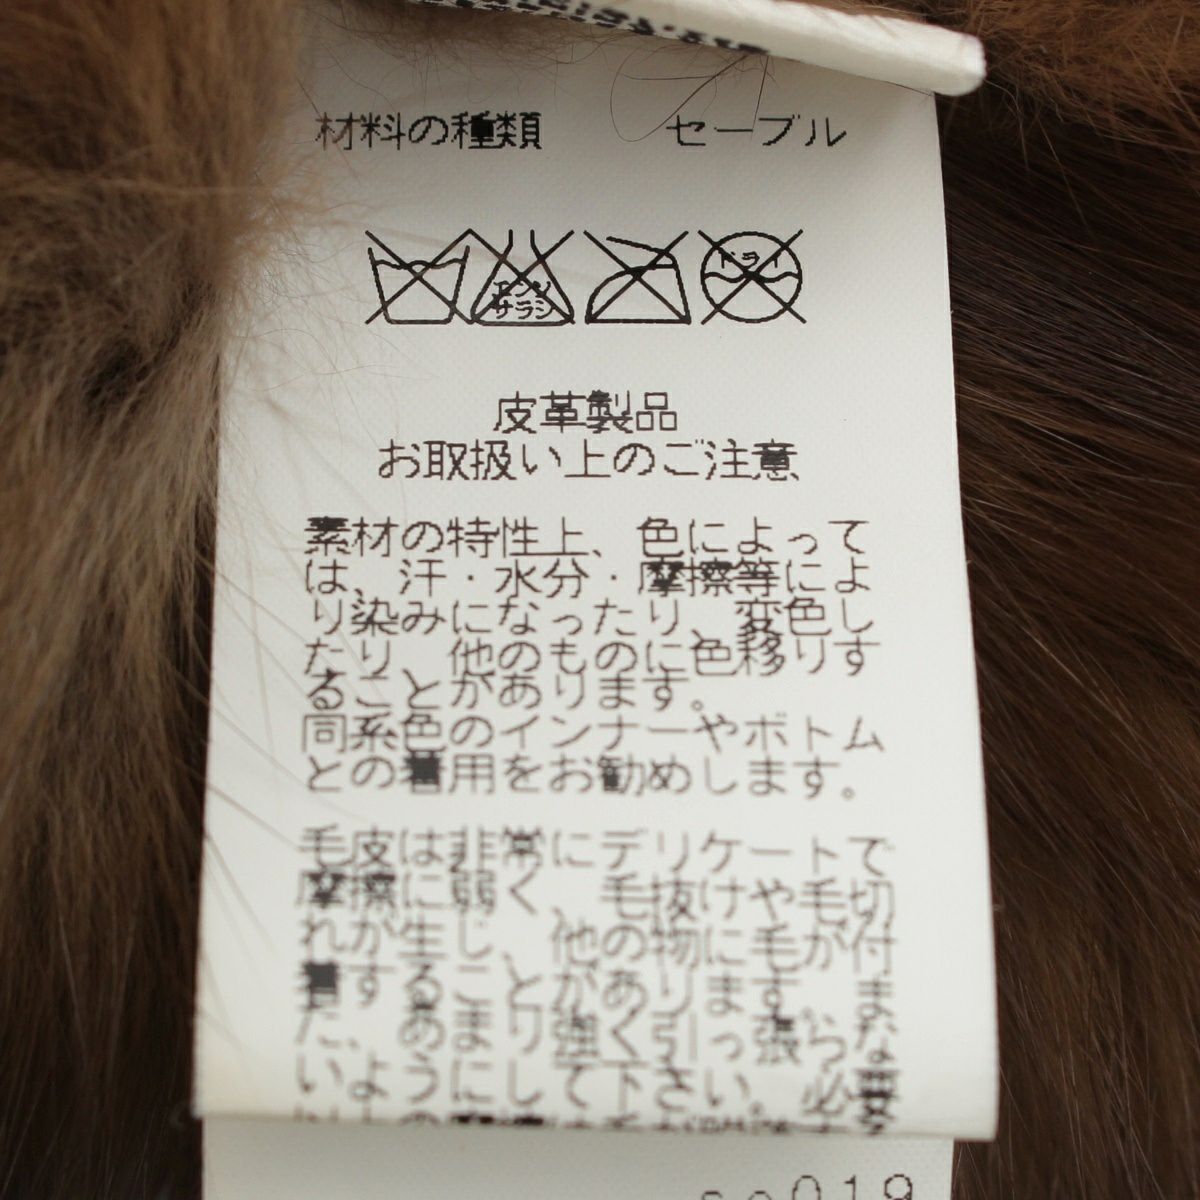 材料の種類　セーブル
エンソ
サラシ
ドライ
皮革製品
お取扱い上のご注意
素材の特性上、色によって
は、汗・水分・摩擦等によ
り染みになったり、変色し
たり、他のものに色移りす
ることがあります。
同系色のインナーやボトム
との着用をお勧めします。
毛皮は非常にデリケートで
摩擦に弱く、毛抜けや毛切
れが生じ、他の物に毛が付
着することがあります。ま
た、あまり強く引っ張らな
いようにして下さい。必要
019